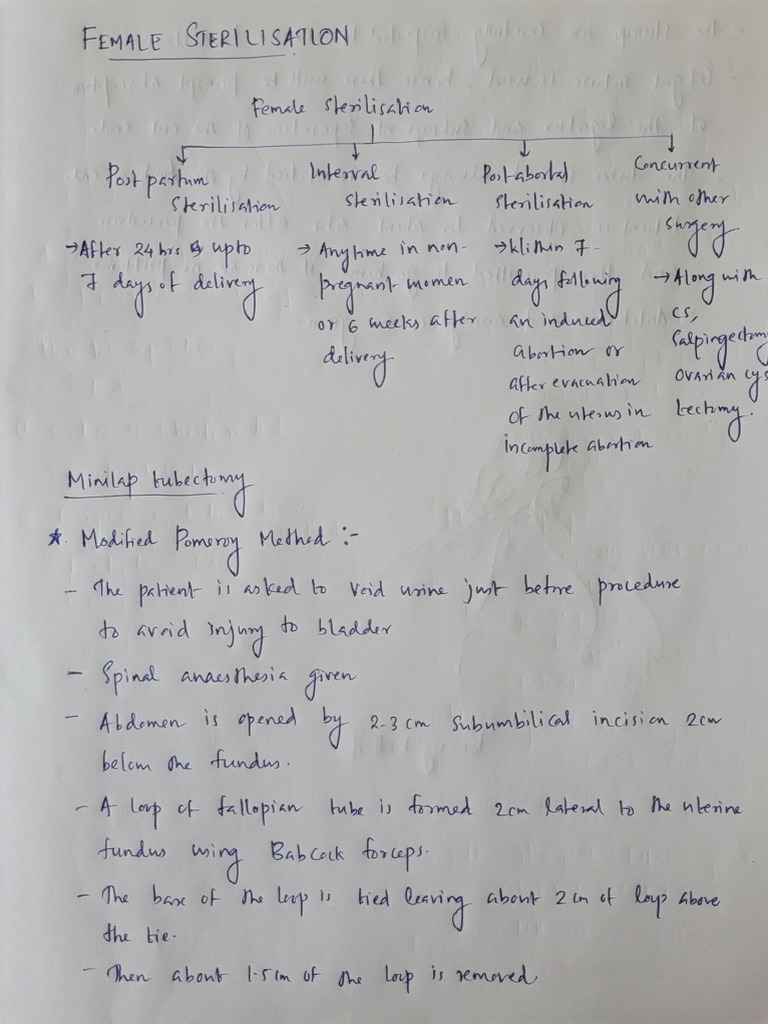 FEMALE STERILISATION
Female Sterilisation
Post partum
Sterilisation
→After 24 hrs upto
7 days of delivery
Interval
Sterilisation
→ Anytime in non-
pregnant women
or 6 weeks after
delivery
Post-abortal
Sterilisation
→Within 7
days following
an induced
abortion or
after evacuation
of the uterus in
incomplete abortion
Concurrent
with other
surgery
→ Along with
CS,
Salpingectomy
Ovarian cys
tectomy.
Minilap tubectomy
* Modified Pomeroy Method :-
- The patient is asked to void urine just before procedure
to avoid injury to bladder
- Spinal anaesthesia given
- Abdomen is opened by 2-3 cm subumbilical incision 2cm
below the fundus.
- A loop of fallopian tube is formed 2cm lateral to the uterine
fundus using Babcock forceps.
- The base of the loop is tied leaving about 2 cm of loop above
the tie.
- Then about 1.5 cm of the loop is removed